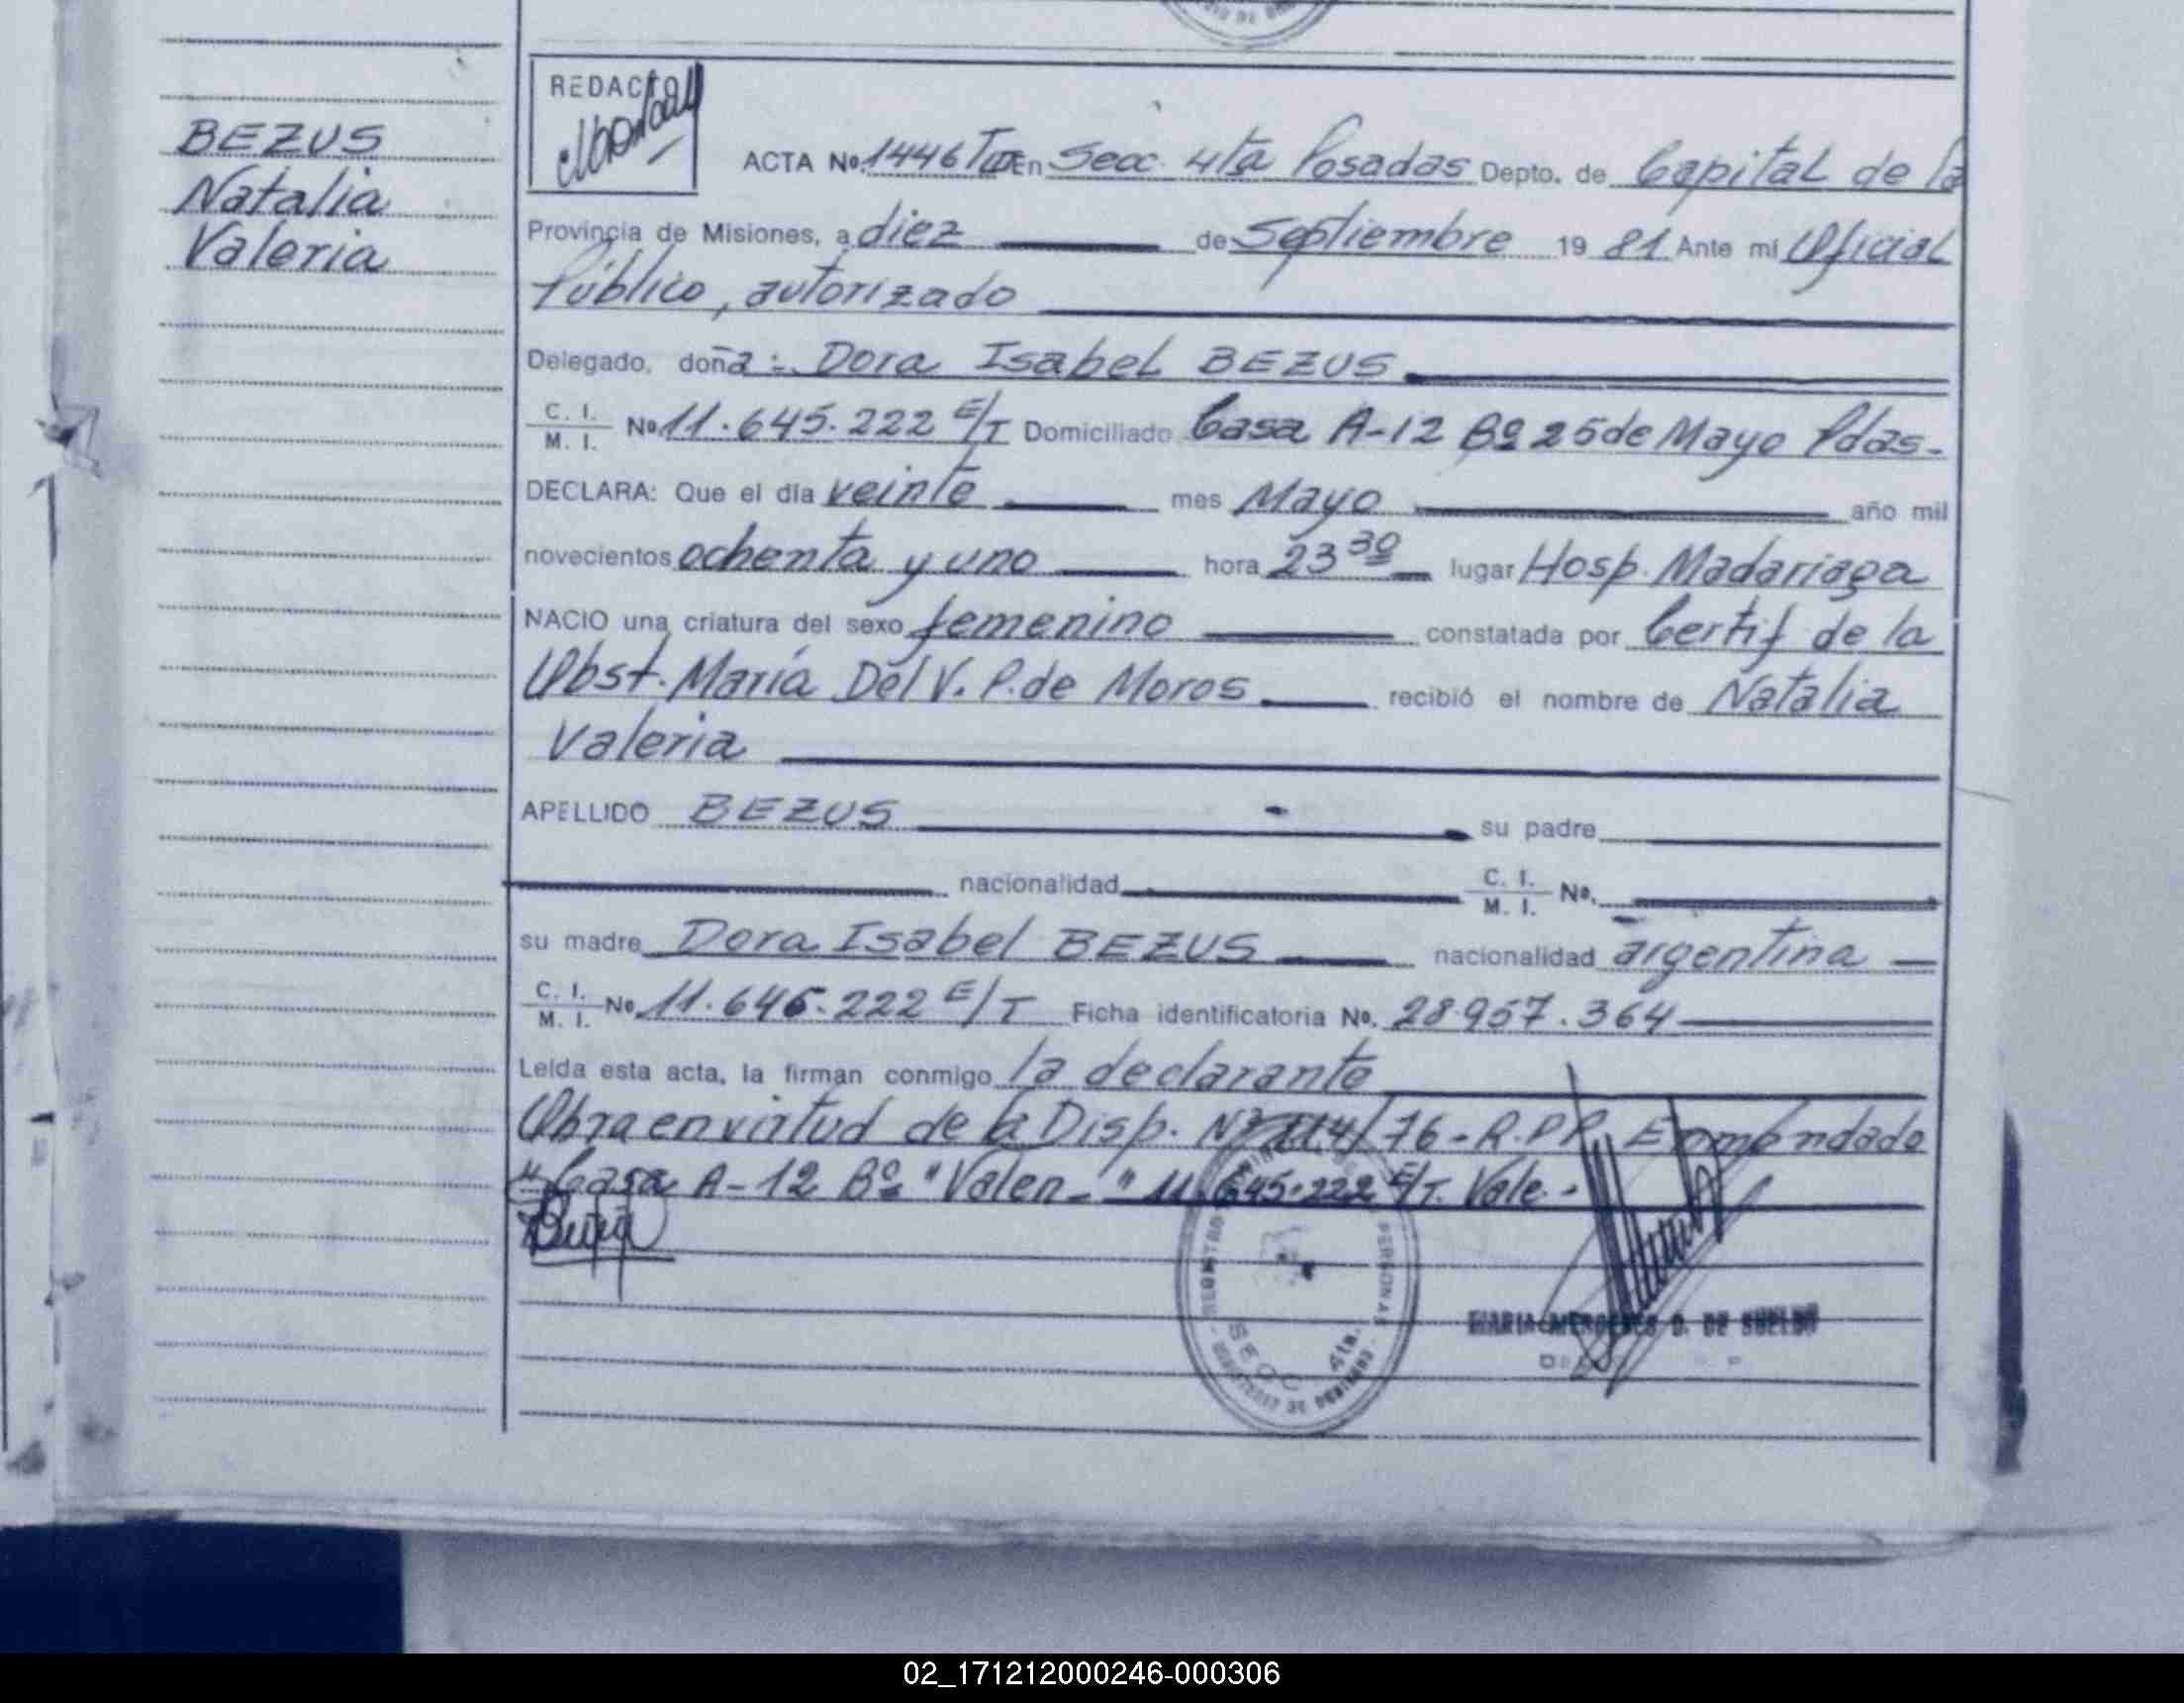 BEZUS
Natalia
Valeria
REDACTO
ACTA No. 1446 TIII En Secc. 4ta Posadas Depto. de Capital de la
Provincia de Misiones, a diez de Septiembre 19 81 Ante mí Oficial
Público, autorizado
Delegado, doña: Dora Isabel BEZUS
C. I. / M. I. No 11.645.222 E/T Domiciliado Casa A-12 Bº 25 de Mayo Pdas-
DECLARA: Que el día veinte mes Mayo año mil
novecientos ochenta y uno hora 23 30 lugar Hosp. Madariaga
NACIO una criatura del sexo femenino constatada por Certif de la
Obst. María Del V. P. de Moros recibió el nombre de Natalia
Valeria
APELLIDO BEZUS su padre
nacionalidad C. I. / M. I. No.
su madre Dora Isabel BEZUS nacionalidad argentina
C. I. / M. I. No 11.645.222 E/T Ficha identificatoria No. 28.957.364
Leída esta acta, la firman conmigo la declarante
Obra en virtud de la Disp. Nº 114/76-R.P.P. Enmendado
"Casa A-12 Bº "Valen- "11.645.222 E/T. Vale.-
SECC 4ta.
MARIA MERCEDES D. DE SUELDO
02_171212000246-000306